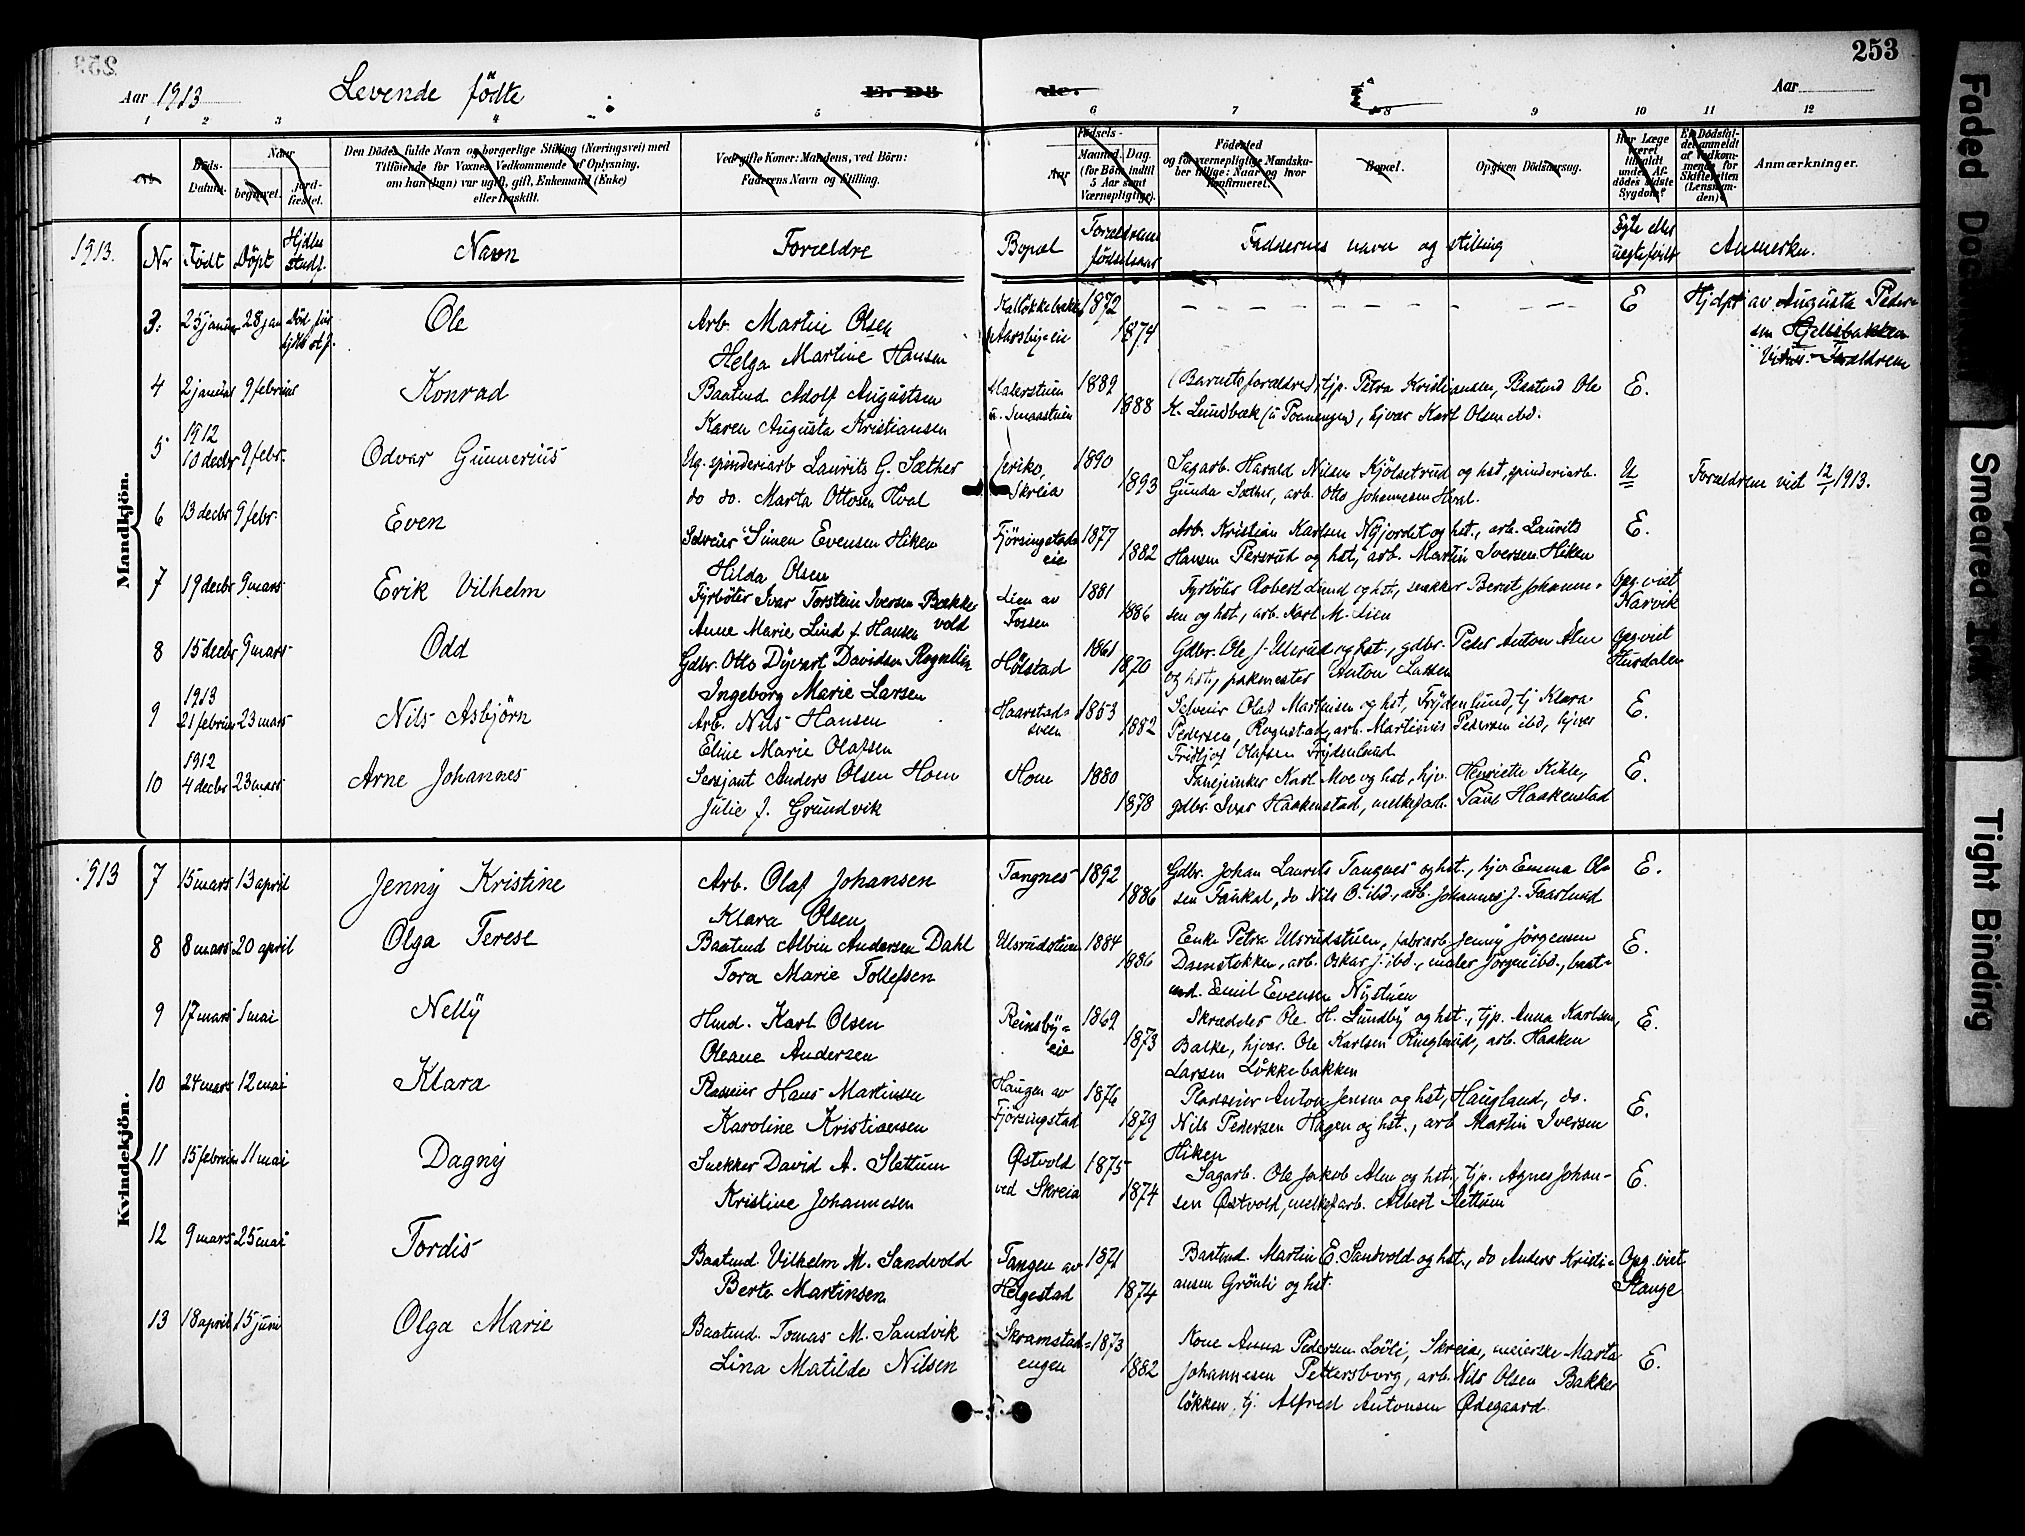 253
Aar 1913 Levende födte
Aar
1 2 3 4 5 6 7 8 9 10 11 12
Døds-Datum. Naar begravet. Jord-fæstet.
Den Dödes fulde Navn og borgerlige Stilling (Næringsvei) med
Tilföiende for Voxnes Vedkommende af Oplysning,
om han (hun) var ugift, gift, Enkemand (Enke)
eller fraskilt.
Ved gifte Koner: Mandens, ved Börn:
Faderens Navn og Stilling.
Födsels-
Aar
Maaned. (for Börn indtil 5 Aar samt Værnepligtige).
Dag.
Födested
og for værnepligtige Mandskaber tillige: Naar og hvor konfirmeret.
Bopæl.
Opgiven Dödsaarsag.
Har Læge været tilkaldt under Afdödes sidste Sygdom?
Er Dödsfaldet anmeldt af Vedkommende for Skifteretten (Lensmanden)?
Anmærkninger.
1913. Nr Födt Döpt Hjdbs stadf. Navn Forældre Bopæl Forældrenes födselsaar Faddernes navn og stilling Egte eller uegte födt Anmerkn.
Mandkjön.
3. 25 januar 28 jan Död för hjdb stf. Ole
Arb. Martin Olsen 1872 E Hjdpt av Augusta Pedersen
Helga Martine Hansen Aarsby-eie 1874
4 2 januar 9 februar Konrad
Baatmd Adolf Augustsen 1889 (Barnets forældre), tjp. Petra Kristiansen, Baatmd Ole E.
Karen Augusta Kristiansen 1888 K. Lundbæk, hjvær Karl Olsen ibd.
5 1912 10 decbr 9 febr. Odvar Gunnerius
Ug. spinderiarb Laurits G. Sæther Jeriko, 1890 Sagarb. Harald Nilsen Kjölsetrud og hst, spinderiarb. U Forældrene viet 12/1 1913.
do do. Marta Ottosen Hval Skreia 1893 Gunda Sæther, arb. Otto Johannesen Hval.
6 13 decbr 9 febr. Even
Selveier Simen Evensen Hiken Fjörsingstadeie 1877 Arb. Kristian Karlsen Nyjordet og hst., arb. Laurits E.
Hilda Olsen 1882 Hansen Persrud og hst, arb. Martin Iversen Hiken
7 19 decbr 9 mars Erik Vilhelm
Fyrböter Ivar Torstein Iversen Bækkevold Lien av 1881 Fyrböter Robert Lund og hst, snekker Bernt Johanne- Opg. viet
Anne Marie Lind f. Hansen Fossen 1886 sen og hst, arb. Karl M. Lien Narvik
8 15 decbr 9 mars Odd
Gdbr. Otto Dyvart Davidsen Rognlin Hölstad 1861 Gdbr. Ole J. Ulsrud og hst., gdbr. Peder Anton Alm Opg. viet
Ingeborg Marie Larsen 1870 og hst, pakmester Anton Larsen Hurdalen
9 1913 21 februar 23 mars Nils Asbjörn
Arb. Nils Hansen Haarstad-sveen 1853 Selveier Olaf Martinsen og hst, Frydenlund, tj Klara E.
Eline Marie Olafsen 1882 Pedersen, Rognstad, arb. Martinus Pedersen ibd, hjvær
Fridtjof Olafsen Frydenlund
10 1912 4 decbr 23 mars Arne Johannes
Sersjant Anders Olsen Hom Hom 1880 Fanejunker Karl Moe og hst, hjv. Henriette Kihle, E.
Julie J. Grundvik 1878 gdbr. Ivar Haakenstad, melkefarb. Paul Haakenstad
Kvindekjön.
1913 7 15 mars 13 april Jenny Kristine
Arb. Olaf Johansen Tangnes 1892 Gdbr. Johan Laurits Tangnes og hst., hjv. Emma Ol- E.
Klara Olsen 1886 sen Faukal, do Nils O. ibd., arb. Johannes J. Faarlund
8 8 mars 20 april Olga Terese
Baatmd Albin Andersen Dahl Ulsrudstuen 1884 Enke Petra Ulsrudstuen, fabrarb Jenny Jörgensen E.
Tora Marie Tollefsen 1886 Damstokken, arb. Oskar J. ibd., maler Jörgen ibd., baat-
md. Emil Evensen Nystuen
9 17 mars 1 mai Nelly
Hmd. Karl Olsen Reinsby-eie 1869 Skrædder Ole H. Lundby og hst., tjp. Anna Karlsen, E.
Oleane Andersen 1873 Balke, hjvær. Ole Karlsen Ringlund, arb. Haaken
Larsen Lökkebakken
10 24 mars 12 mai Klara
Pladseier Hans Martinsen Haugen av 1876 Pladseier Anton Jensen og hst, Haugland, do. E.
Karoline Kristiansen Fjörsingstad 1879 Nils Pedersen Hagen og hst., arb Martin Iversen
Hiken
11 15 februar 11 mai Dagny
Snekker David A. Slettum Østvold 1875 Sagarb. Ole Jakob Alm og hst., tjp. Agnes Johan- E.
Kristine Johannesen ved Skreia 1874 sen Østvold, melkefarb. Albert Slettum
12 9 mars 25 mai Tordis
Baatmd Vilhelm M. Sandvold Tangen av 1871 Baatmd. Martin E. Sandvold og hst., do Anders Kristi- Opg. viet
Berte Martinsen Helgestad 1874 ansen Grönli og hst. Stange
13 18 april 15 juni Olga Marie
Baatmd. Tomas M. Sandvik Skramstad- 1873 Kone Anna Pedersen Löili, Skreia, meierske Marta E.
Lina Matilde Nilsen engen 1882 Johannesen Pettersborg, arb. Nils Olsen Bakker
lökken, tj. Alfred Antonsen Ødegaard.
Faded Document
Smeared Ink
Tight Binding